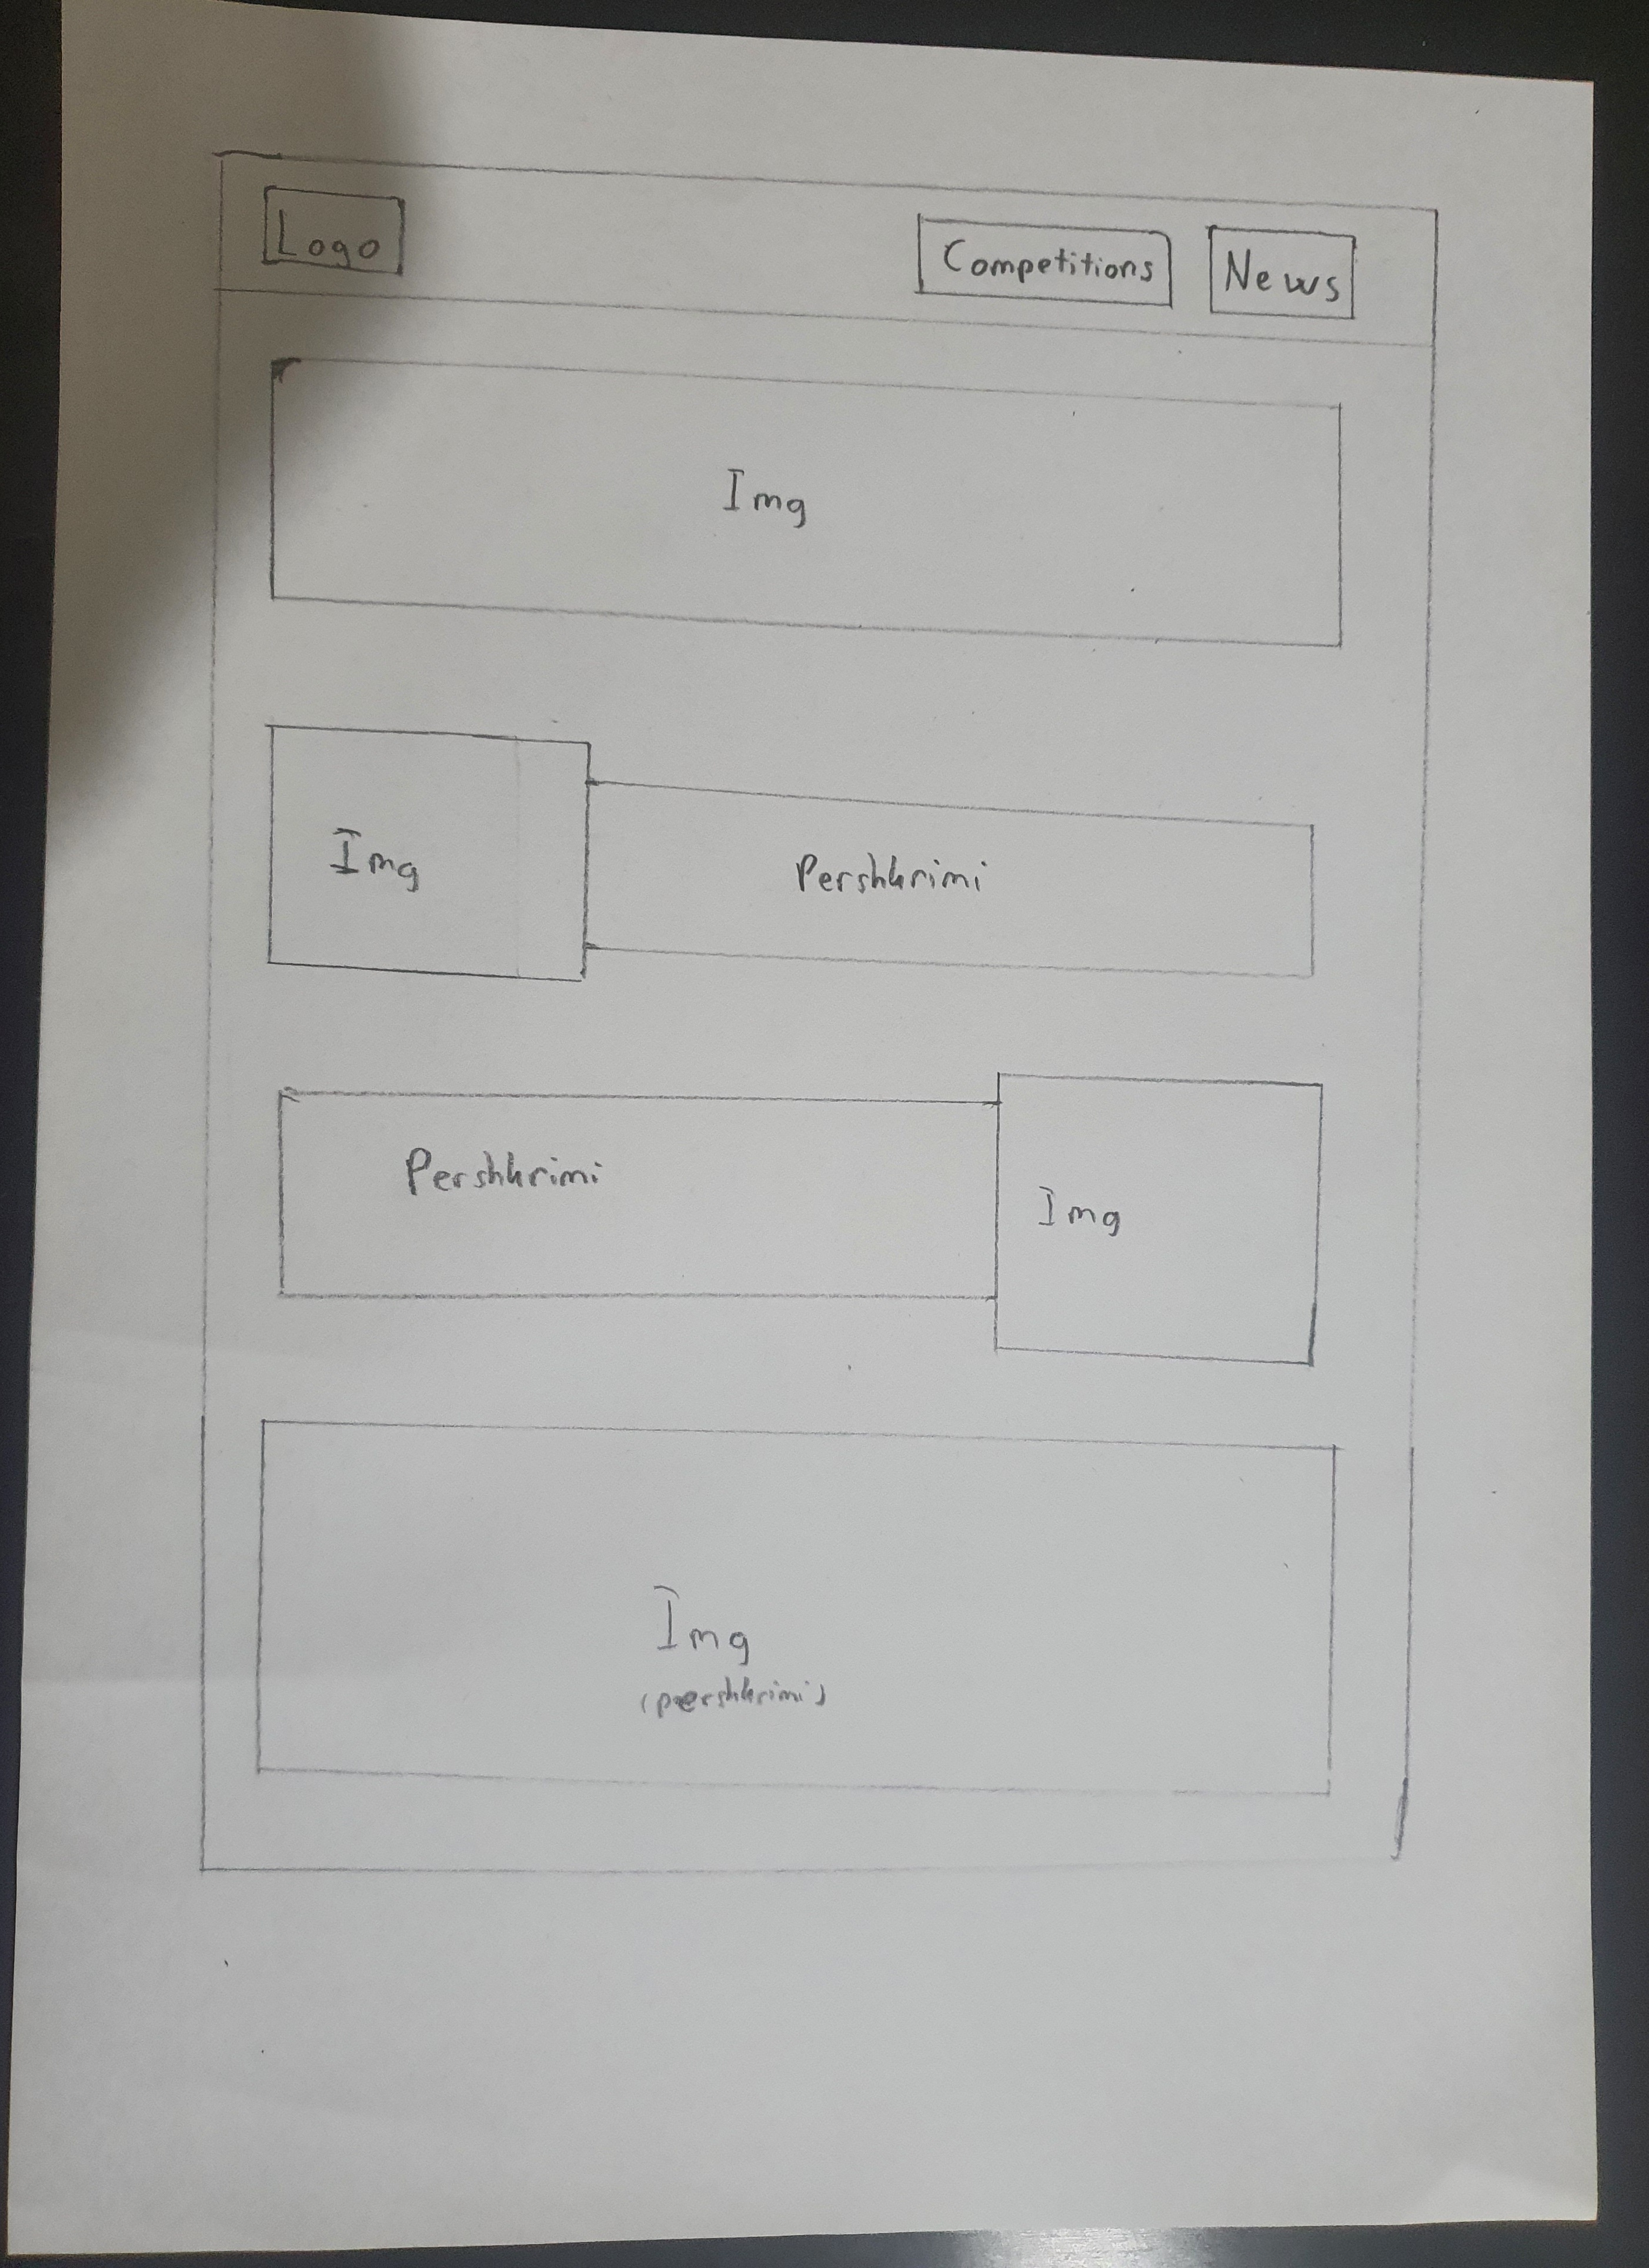 Logo
Competitions
News
Img
Img
Pershkrimi
Pershkrimi
Img
Img
(pershkrimi)